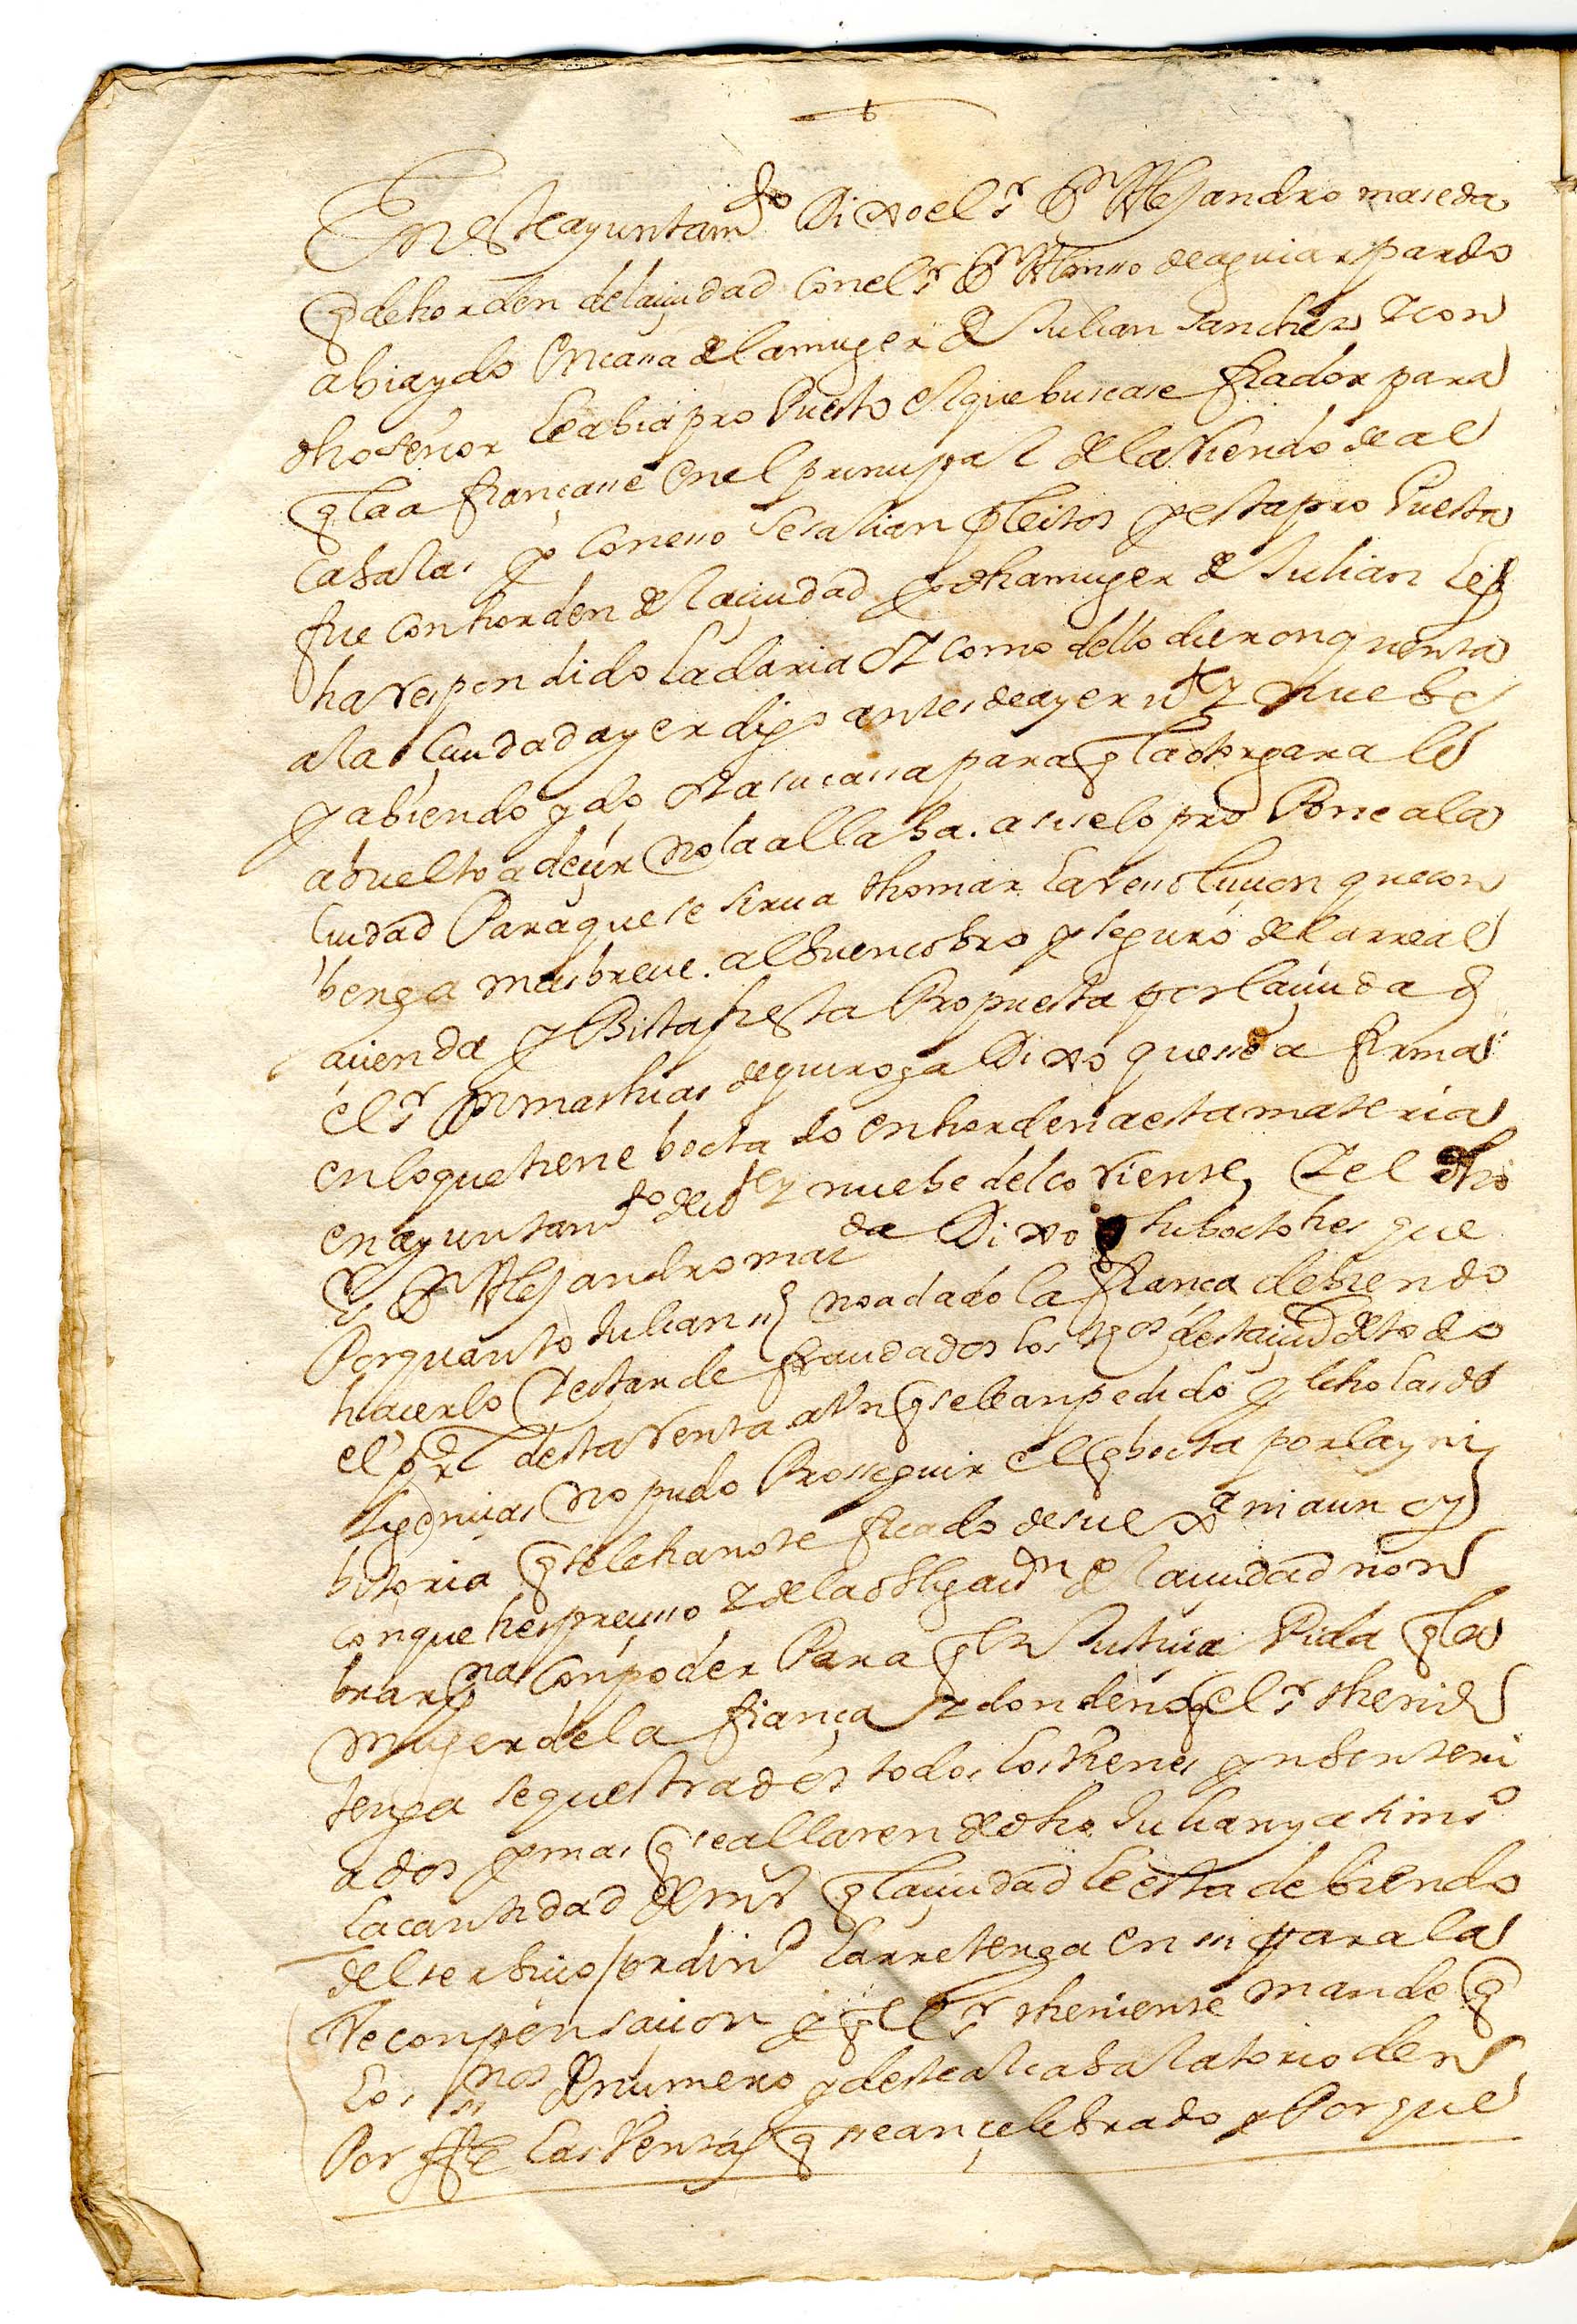 En este ayuntamto Dixo el sr Dn Alejandro maseda
q de horden de la ciudad con el sr Dn Alonsso de aguiar pardo
abia ydo en cassa de la muger de Julian sanchez y con
dho señor le abia pro Puesto el que buscase fiador para
q la afiançasse en el principal de la Hiendo de al
cabalas y con esso se salian pleitos y esta pro Puesta
fue con horden de la ciudad y dha muger de Julian les
ha respondido la daria y como dello dieron quenta
a la Ciudad ayer digo antes de ayer diez y nuebe
y abiendo ydo a su cassa para q la otorgara le
a buelto a deçir no la allaba. assi se lo pro Pone a la
Ciudad Para que se sirua thomar la ressoluçion que con
benga mas breue. al buen cobro y seguro de la rreal
açienda y Bista esta Propuesta por la çiudad
el sr Dn mathias de quiroga Dixo que se a firma
en lo que tiene bocta do en horden a esta materia
en ayuntamto de diez y nuebe del coRiente, y el dho
sr Dn Alejandro maseda Dixo su bocto hes que
Por quanto Julian ss no a dado la fiança debiendo
hacerlo y estar de fraudados los vos desta ciud de todo
el pral desta Renta aun q se le an pedido y hecho las de
ligençias no pudo Prosseguir el q bocta por la yni
bitoria q se le ha notificado de su exa ni aun oy
con que hes preçisso y de la obligacion de la ciudad nom
brar persona con poder Para q en Justicia Pida q la
muger de la fiança y donde no q el sr theniente
tenga sequestrados todos los Vienes ynbenteri
ados y mas q se allaren de dho Julian y asimsmo
la cantidad de mrs q la çiudad le esta debiendo
del serbiçio hordinro la rretenga en si para la
Recompensaçion y q el sr theniente mande q
los ssnos de numero y deste alcabalatorio den
Por ffee las Rentas q se an çelebrado y Porque